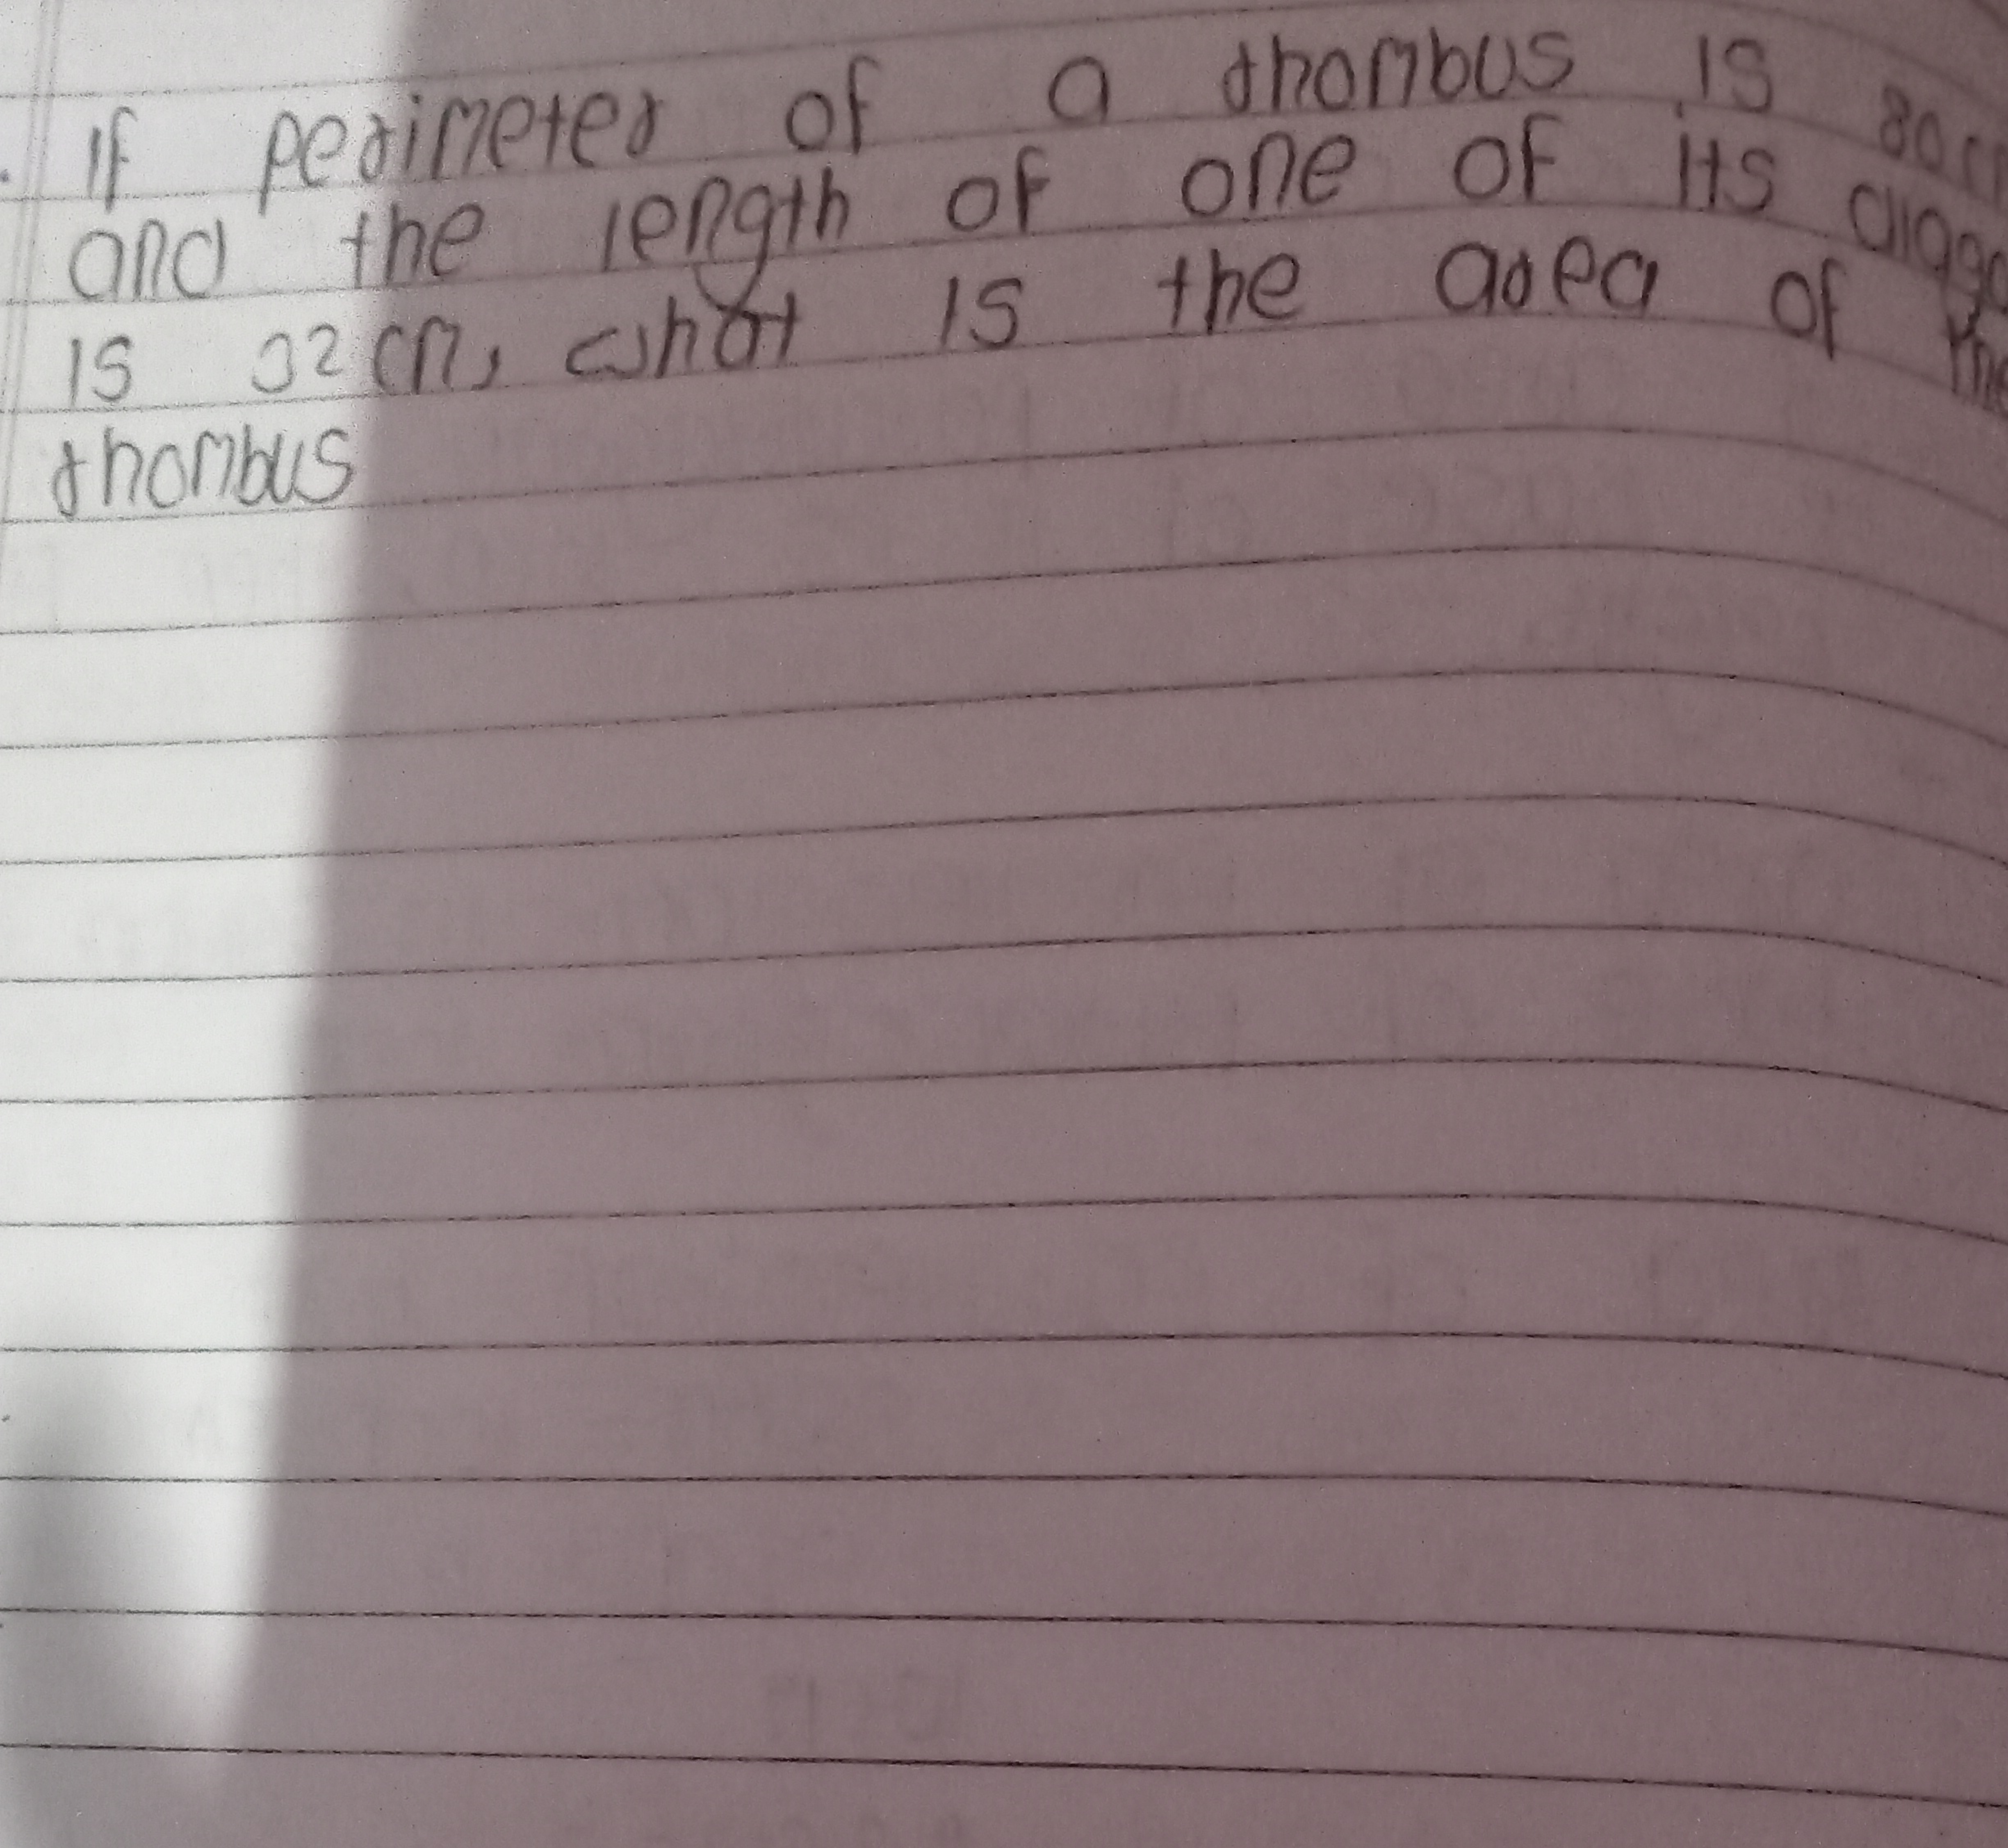 . If perimeter of a rhombus is 80c
and the length of one of its
is 32 cm, what is the area of the
rhombus